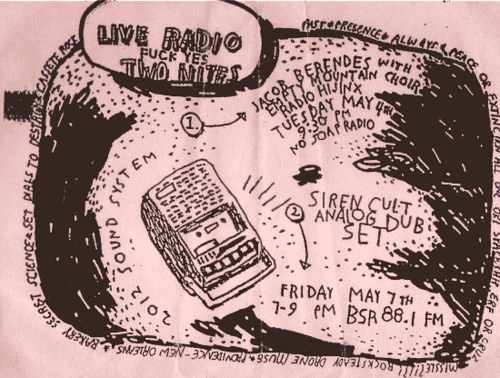 LIVE RADIO
FUCK YES
TWO NITES
1.
JACOB BERENDES WITH
EMPTY MOUNTAIN CHOIR
RADIO HIJINX
TUESDAY MAY 4TH
9:30 PM
NO SOAP RADIO
2012 SOUND SYSTEM
2
SIREN CULT
ANALOG DUB
SET
FRIDAY MAY 7TH
7-9 PM BSR 88.1 FM
PAST + PRESENCE + ALWAYS + PEACE OR
ROCKSTEADY DRONE MUSE + PROVIDENCE - NEW ORLEANS +
BAKERY SECRET SCIENCE + SET DIALS TO DESTROY + CASSETTE ROCK